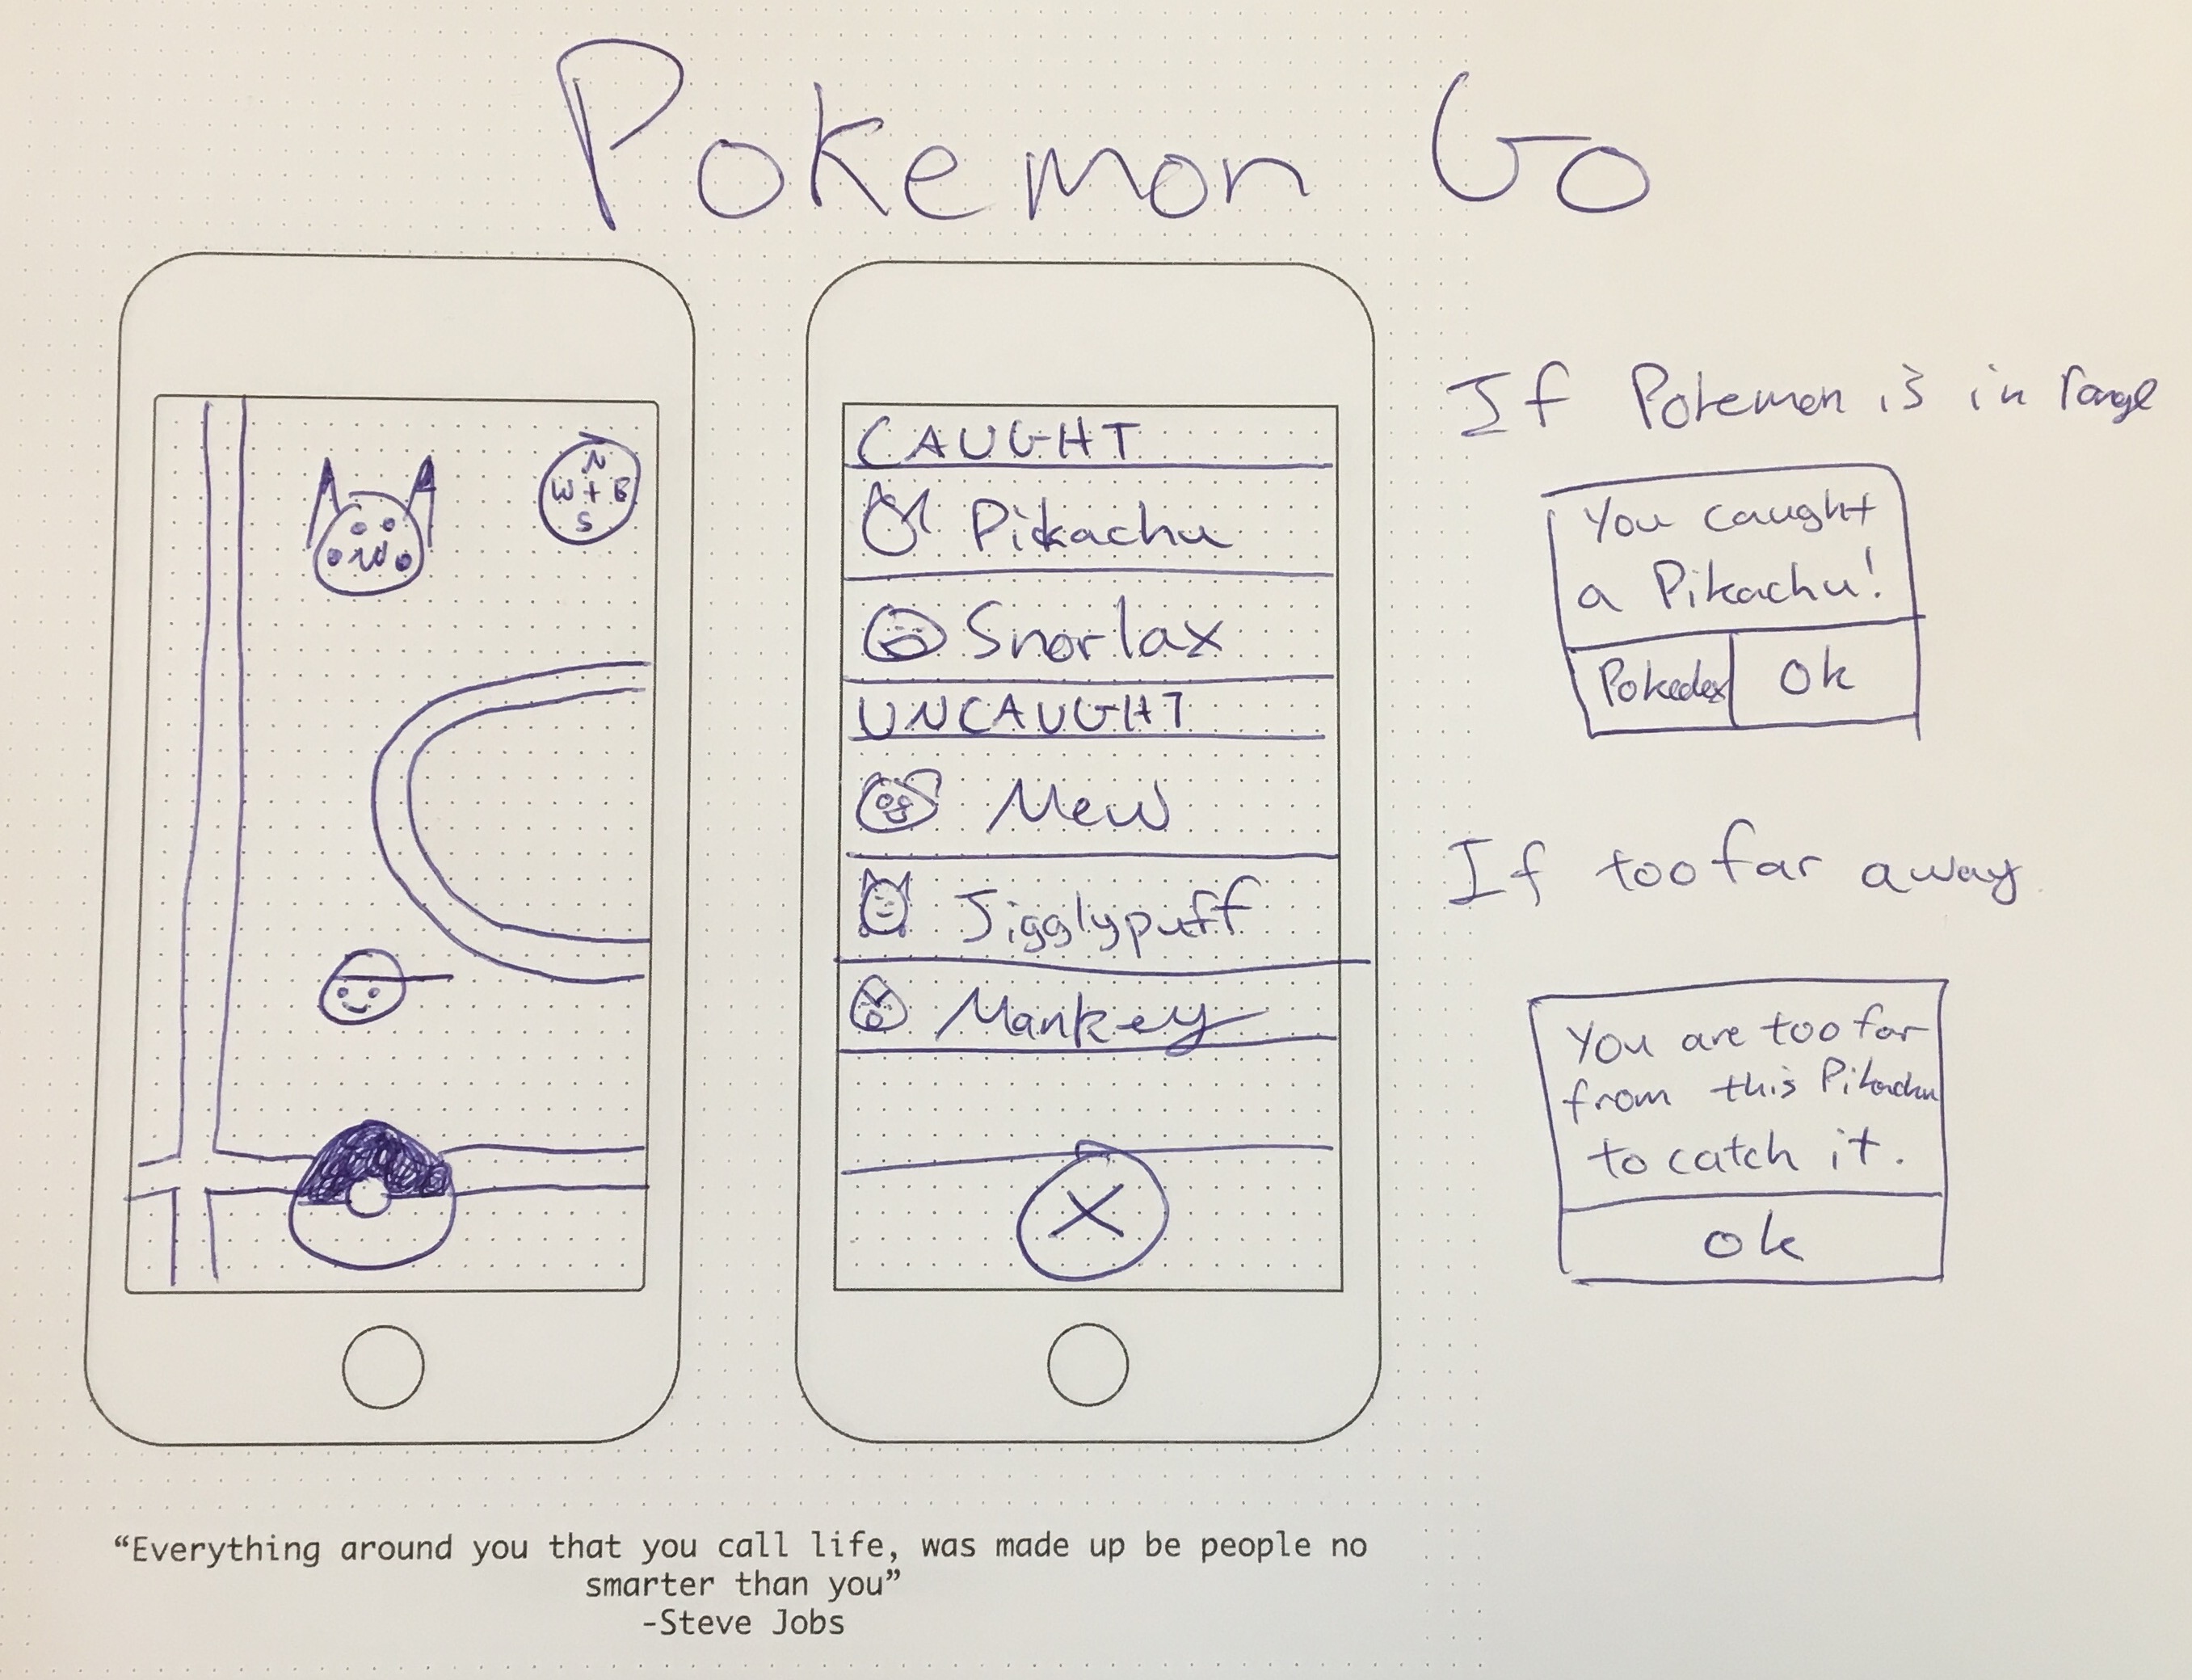 Pokemon Go
N
W + E
S
CAUGHT
Pikachu
Snorlax
UNCAUGHT
Mew
Jigglypuff
Mankey
X
If Pokemon is in range
You caught
a Pikachu!
Pokedex Ok
If too far away
You are too far
from this Pikachu
to catch it.
ok
“Everything around you that you call life, was made up be people no
smarter than you”
-Steve Jobs